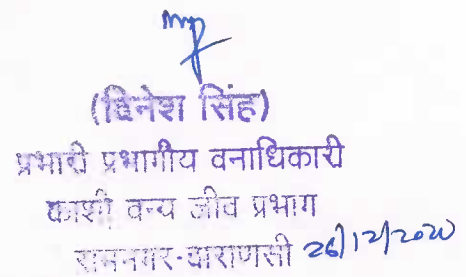 (दिनेश सिंह)
प्रभारी प्रभागीय वनाधिकारी
काशी वन्य जीव प्रभाग
रामनगर-वाराणसी 26/12/2020